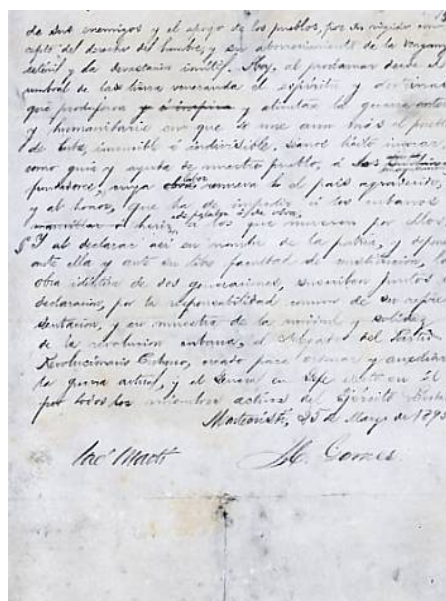 de sus enemigos y el apoyo de los pueblos, por su rígido con-
cepto del derecho del hombre, y su aborrecimiento de la venganza
estéril y la devastación inútil. Hoy, al proclamar desde el
umbral de la tierra veneranda el espíritu y doctrinas
que produjeron y alientan la guerra entera
y humanitaria en que se une aun más el pueblo
de Cuba, invencible é indivisible, séanos lícito invocar,
como guia y ayuda de nuestro pueblo, á los
fundadores, cuya labor renueva el país agradecido,
y al honor, que ha de impedir á los cubanos
herir, de palabra ó de obra, á los que mueren por ellos.
Y al declarar así en nombre de la patria, y deponer
ante ella y ante su libre facultad de constitución, la
obra idéntica de dos generaciones, suscriben juntos la
declaración, por la responsabilidad comun de su repre-
sentación, y en muestra de la unidad y solidez
de la revolución cubana, el Delegado del Partido
Revolucionario Cubano, creado para ordenar y auxiliar
la guerra actual, y el General en Jefe electo en él
por todos los miembros activos del Ejército Libertador
Montecristi, 25 de Marzo de 1895
José Martí M. Gomez